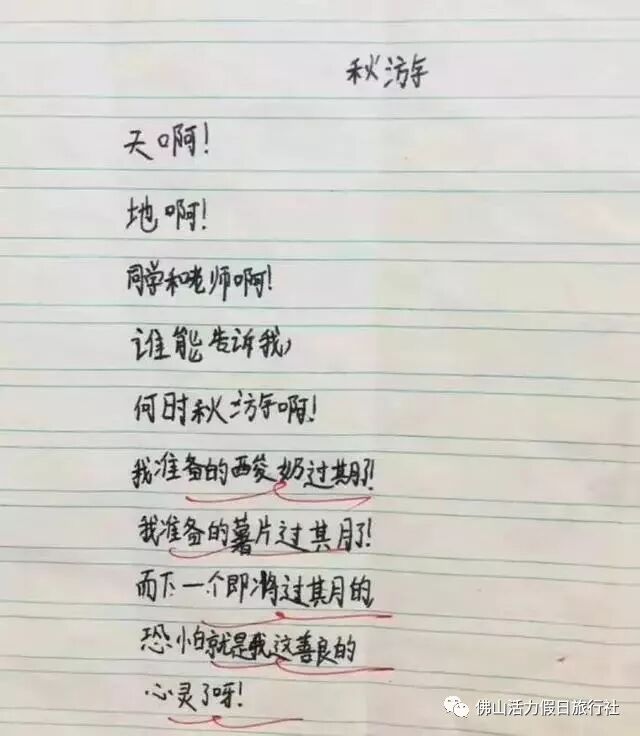 秋游
天啊！
地啊！
同学和老师啊！
谁能告诉我，
何时秋游啊！
我准备的酸奶过期了！
我准备的薯片过期了！
而下一个即将过期的，
恐怕就是我这善良的
心灵了呀！
佛山活力假日旅行社